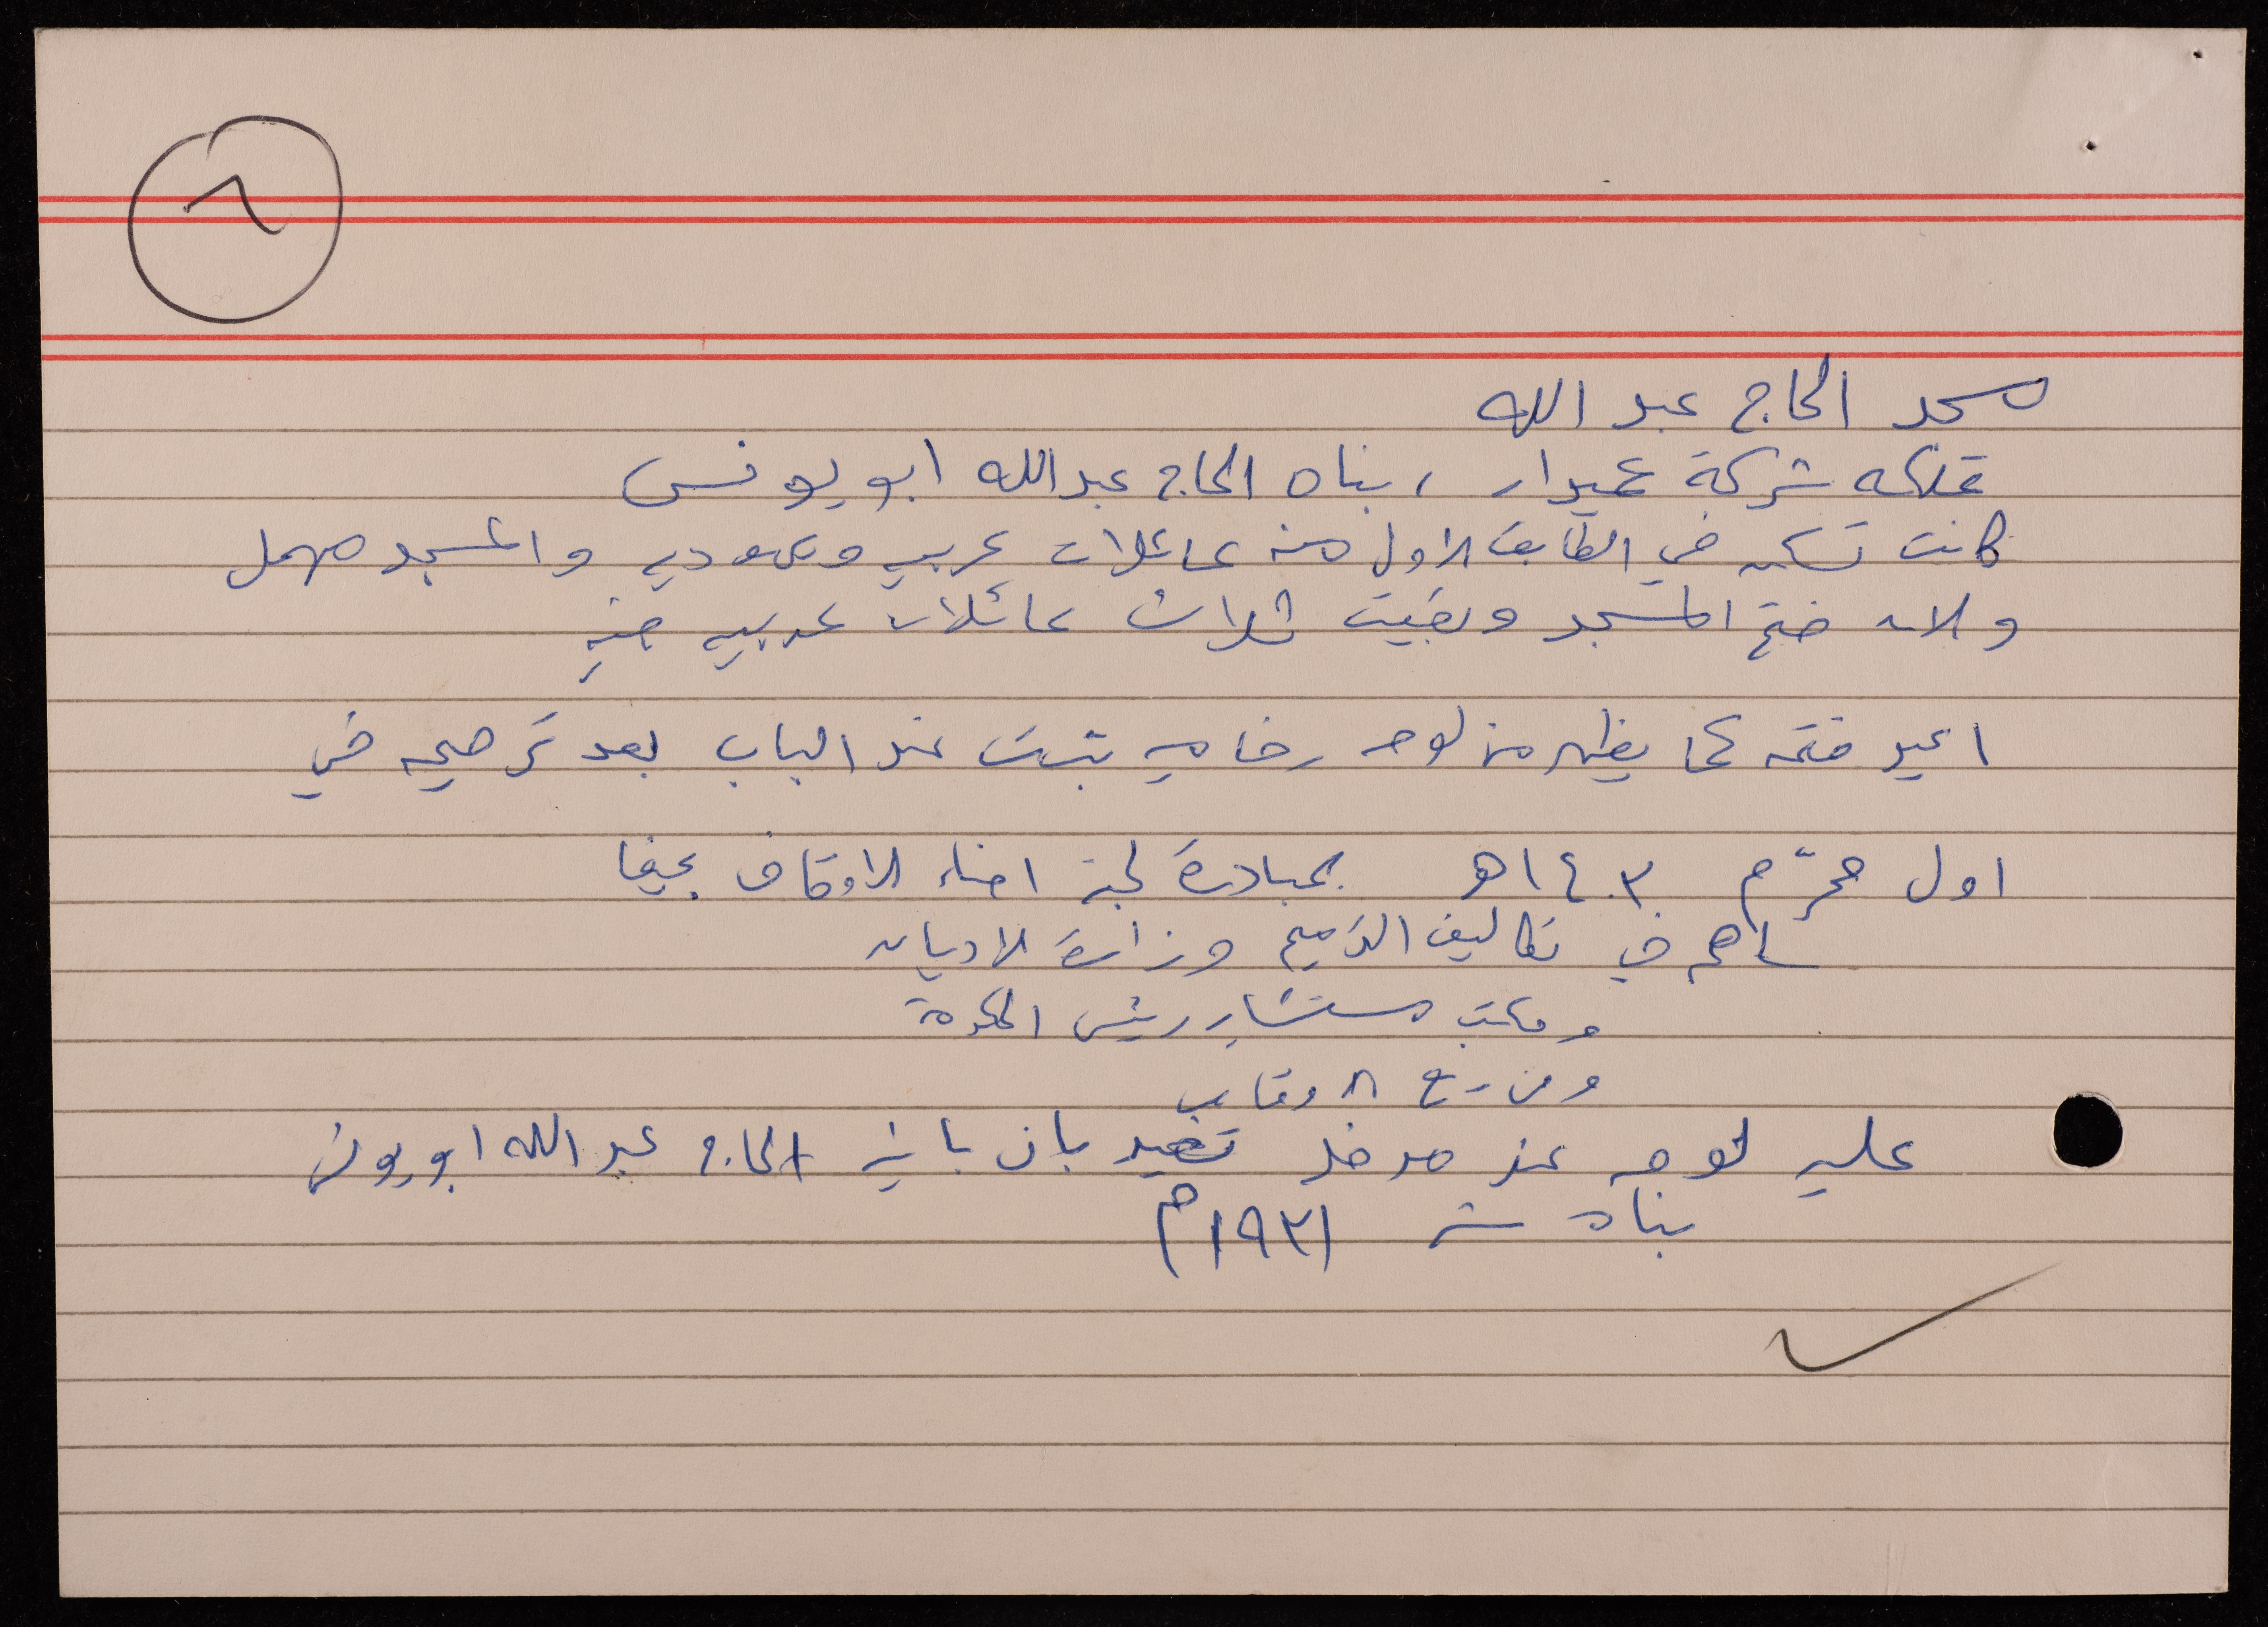 ٦
مسجد الحاج عبد الله
تملكه شركة عميدار ، بناه الحاج عبدالله ابو يونس
كانت تسكن في الطابق الاول منه عائلات عربيه ويهوديه والمسجد مهمل
والان فتح المسجد وبقيت ثلاث عائلات عربيه فيه
اعيد فتحه كما يظهر من لوحه رخاميه ثبتت عند الباب بعد ترميمه في
اول محرّم ١٤٠٣ه بمبادرة لجنة امناء الاوقاف بحيفا
ساهم في تكاليف الترميم وزارة الاديان
ومكتب مستشار رئيس الحكومة
ومن ريع الاوقاف
عليه لوحه عند مدخل تفيد بان بانيه الحاج عبد الله ابو يونس
بناه سنة ١٩٣١م